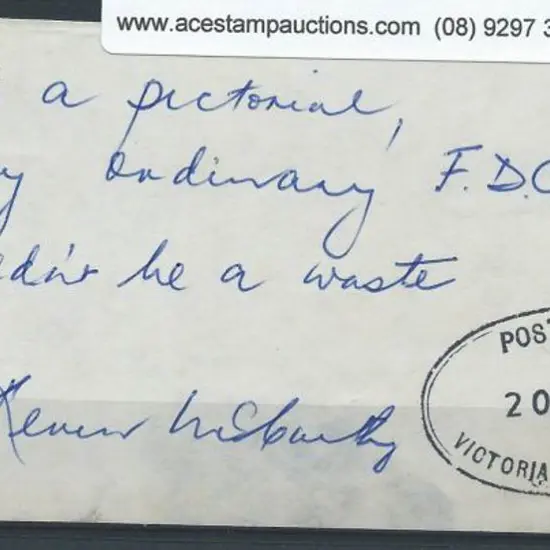 www.acestampauctions.com (08) 9297 3
a pictorial,
ordinary F.D.C
be a waste
POS
20
VICTORIA
Kevin McCarthy